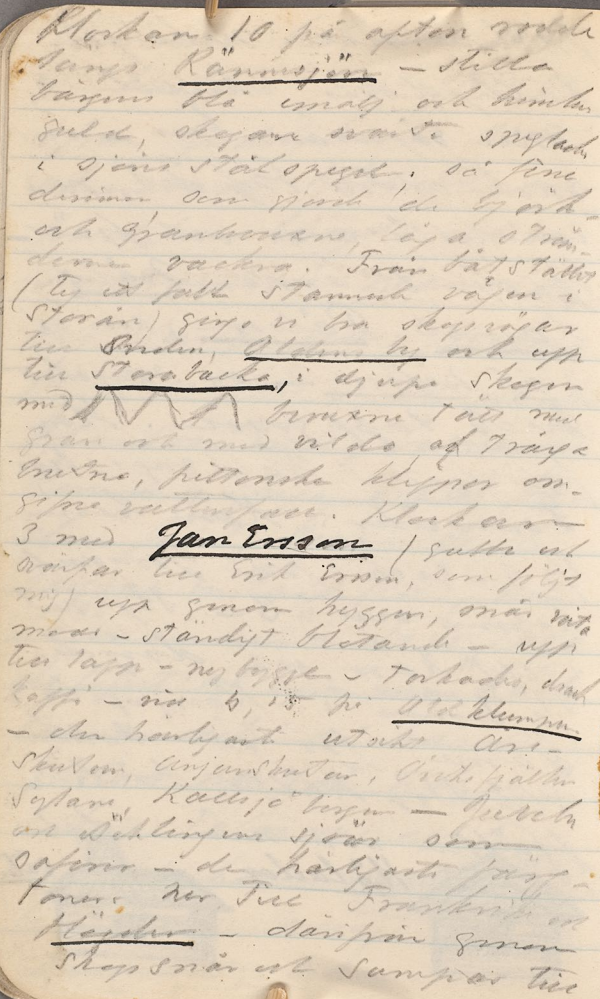 Klockan 10 på afton rodde
längs Rännsjön – stilla
bärgens blå emalj och himlen
guld, skogarne svarta speglade
i sjöns stålspegel, så fine
dimman som gjorde de björk-
och granbouxne, låga strän-
derna vackra. Från båtstället
(ty ett fall stannade vägen i
Storån) gingo vi bra skogsvägar
till Oldens by och upp
till Storabacke, i djupa skogen
med bouxne tätt med
gran och med vilda, af tråga
klippor om-
gifna vattenfall. Klockan
3 med Jan Ersson / gubbe och
svärfar till Erik Ersson, som följt
mig) upp genom hyggen, snår, våta
moar – ständigt blötande – upp
till lapp-nybygge – torkades, drack
kaffe – vid 4,15 på Oldklumpen
– den härligaste utsikt Åre-
skutan, Anjeskutan,
Sylarne, Kallsjö bergen –
sjöar som
safirer – de härligaste färg-
toner. Ner till Frankrike och
Höjden – därifrån genom
skogssnår och sumpar till